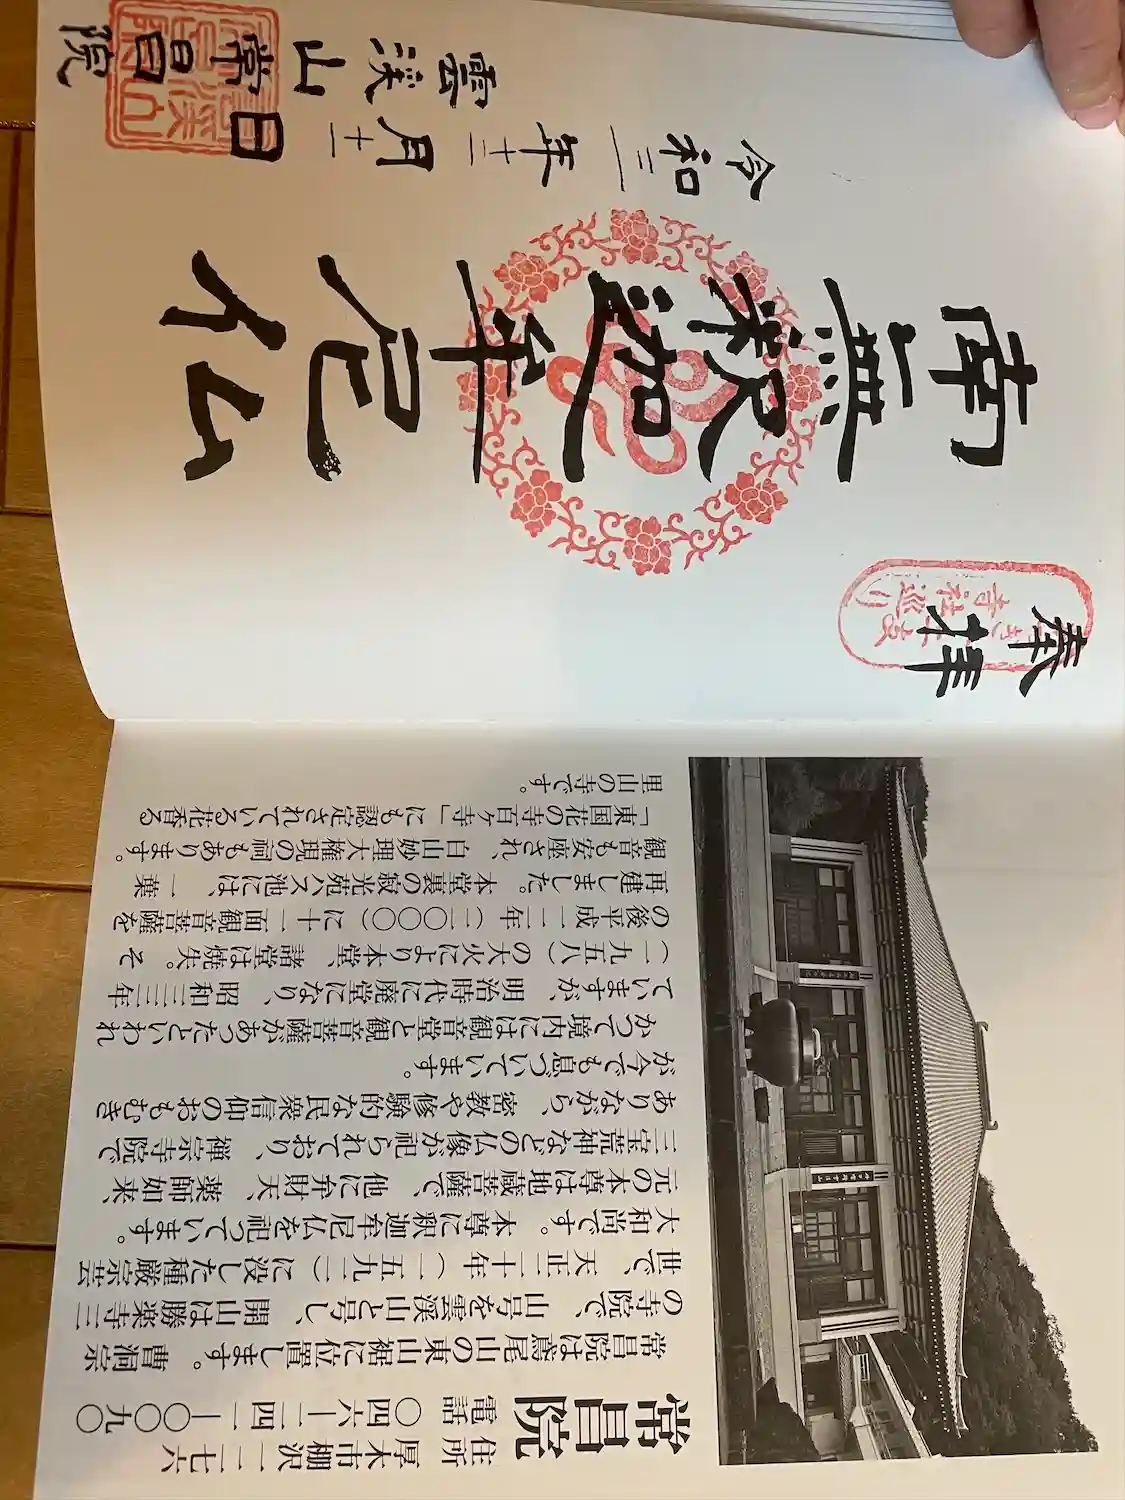 常昌院
住所 厚木市棚沢一二七六
電話 〇四六―二四一―〇〇九〇
常昌院は鳶尾山の東山裾に位置します。曹洞宗
の寺院で、山号を雲溪山と号し、開山は勝楽寺三
世で、天正二十年(一五九二)に没した種厳宗芸
大和尚です。本尊に釈迦牟尼仏を祀っています。
元の本尊は地蔵菩薩で、他に弁財天、薬師如来、
三宝荒神などの仏像が祀られており、禅宗寺院で
ありながら、密教や修験的な民衆信仰のおもむき
が今でも息づいています。
かつて境内には観音堂と観音菩薩があったといわれ
ていますが、明治時代に廃堂になり、昭和三三年
(一九五八)の大火により本堂、諸堂は焼失。そ
の後平成一二年(二〇〇〇)に十一面観音菩薩を
再建しました。本堂裏の寂光苑ハス池には、一葉
観音も安座され、白山妙理大権現の祠もあります。
「東国花の寺百ヶ寺」にも認定されている花香る
里山の寺です。
奉拝
寺社巡り
南無釈迦牟尼仏
令和三年十二月十一日
雲溪山常昌院